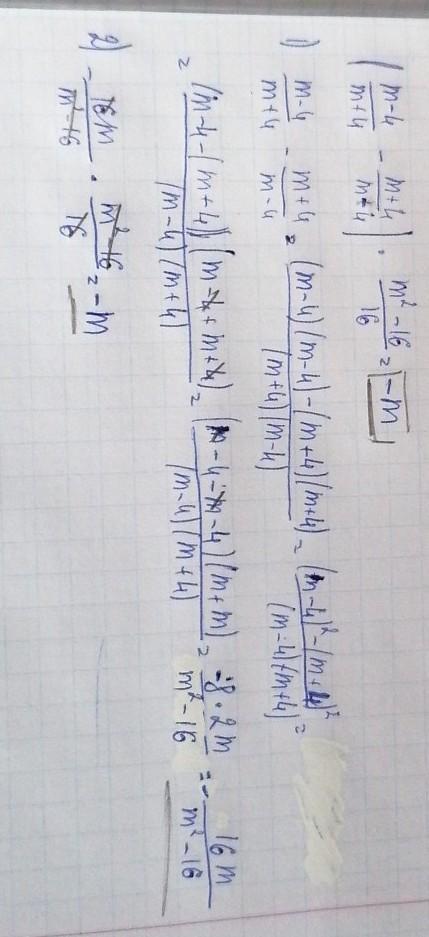 (m-4/m+4 - m+4/m-4) · m²-16/16 = -m
1) m-4/m+4 - m+4/m-4 = (m-4)(m-4)-(m+4)(m+4)/(m+4)(m-4) = (m-4)²-(m+4)²/(m-4)(m+4) =
= (m-4-(m+4))(m-4+m+4)/(m-4)(m+4) = (m-4-m-4)(m+m)/(m-4)(m+4) = -8·2m/m²-16 = -16m/m²-16
2) -16m/m²-16 · m²-16/16 = -m